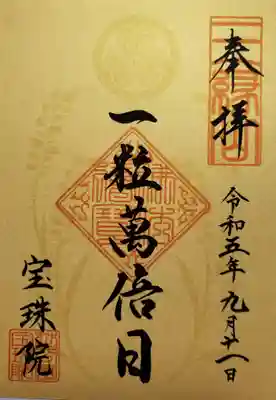 奉拝
令和五年九月廿一日
一粒萬倍日
宝珠院